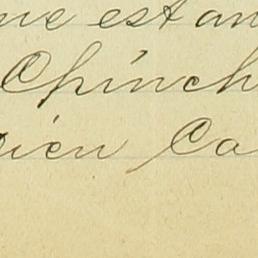 ue est an
Chinch
cien Ca